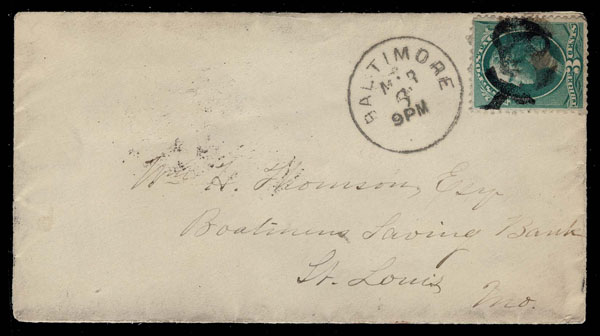 BALTIMORE
MAR
9PM
3 CENTS
Wm H. Thomson, Esq
Boatmens Saving Bank
St. Louis
Mo.